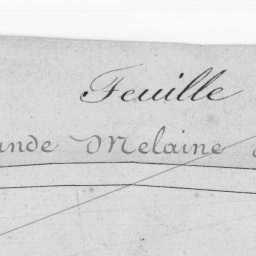 Feuille
ande Melaine